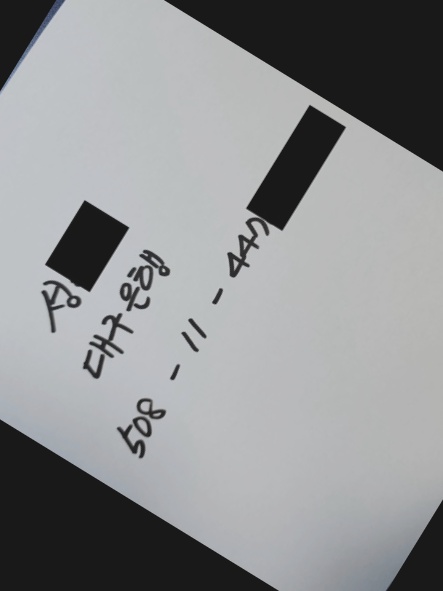 정
대구은행
508-11-447